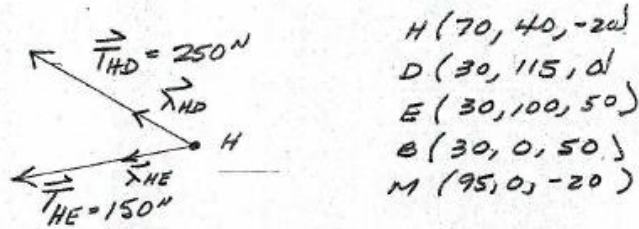 T_HD = 250 N
λ_HD
H
λ_HE
T_HE = 150 N
H (70, 40, -20)
D (30, 115, 0)
E (30, 100, 50)
B (30, 0, 50)
M (95, 0, -20)